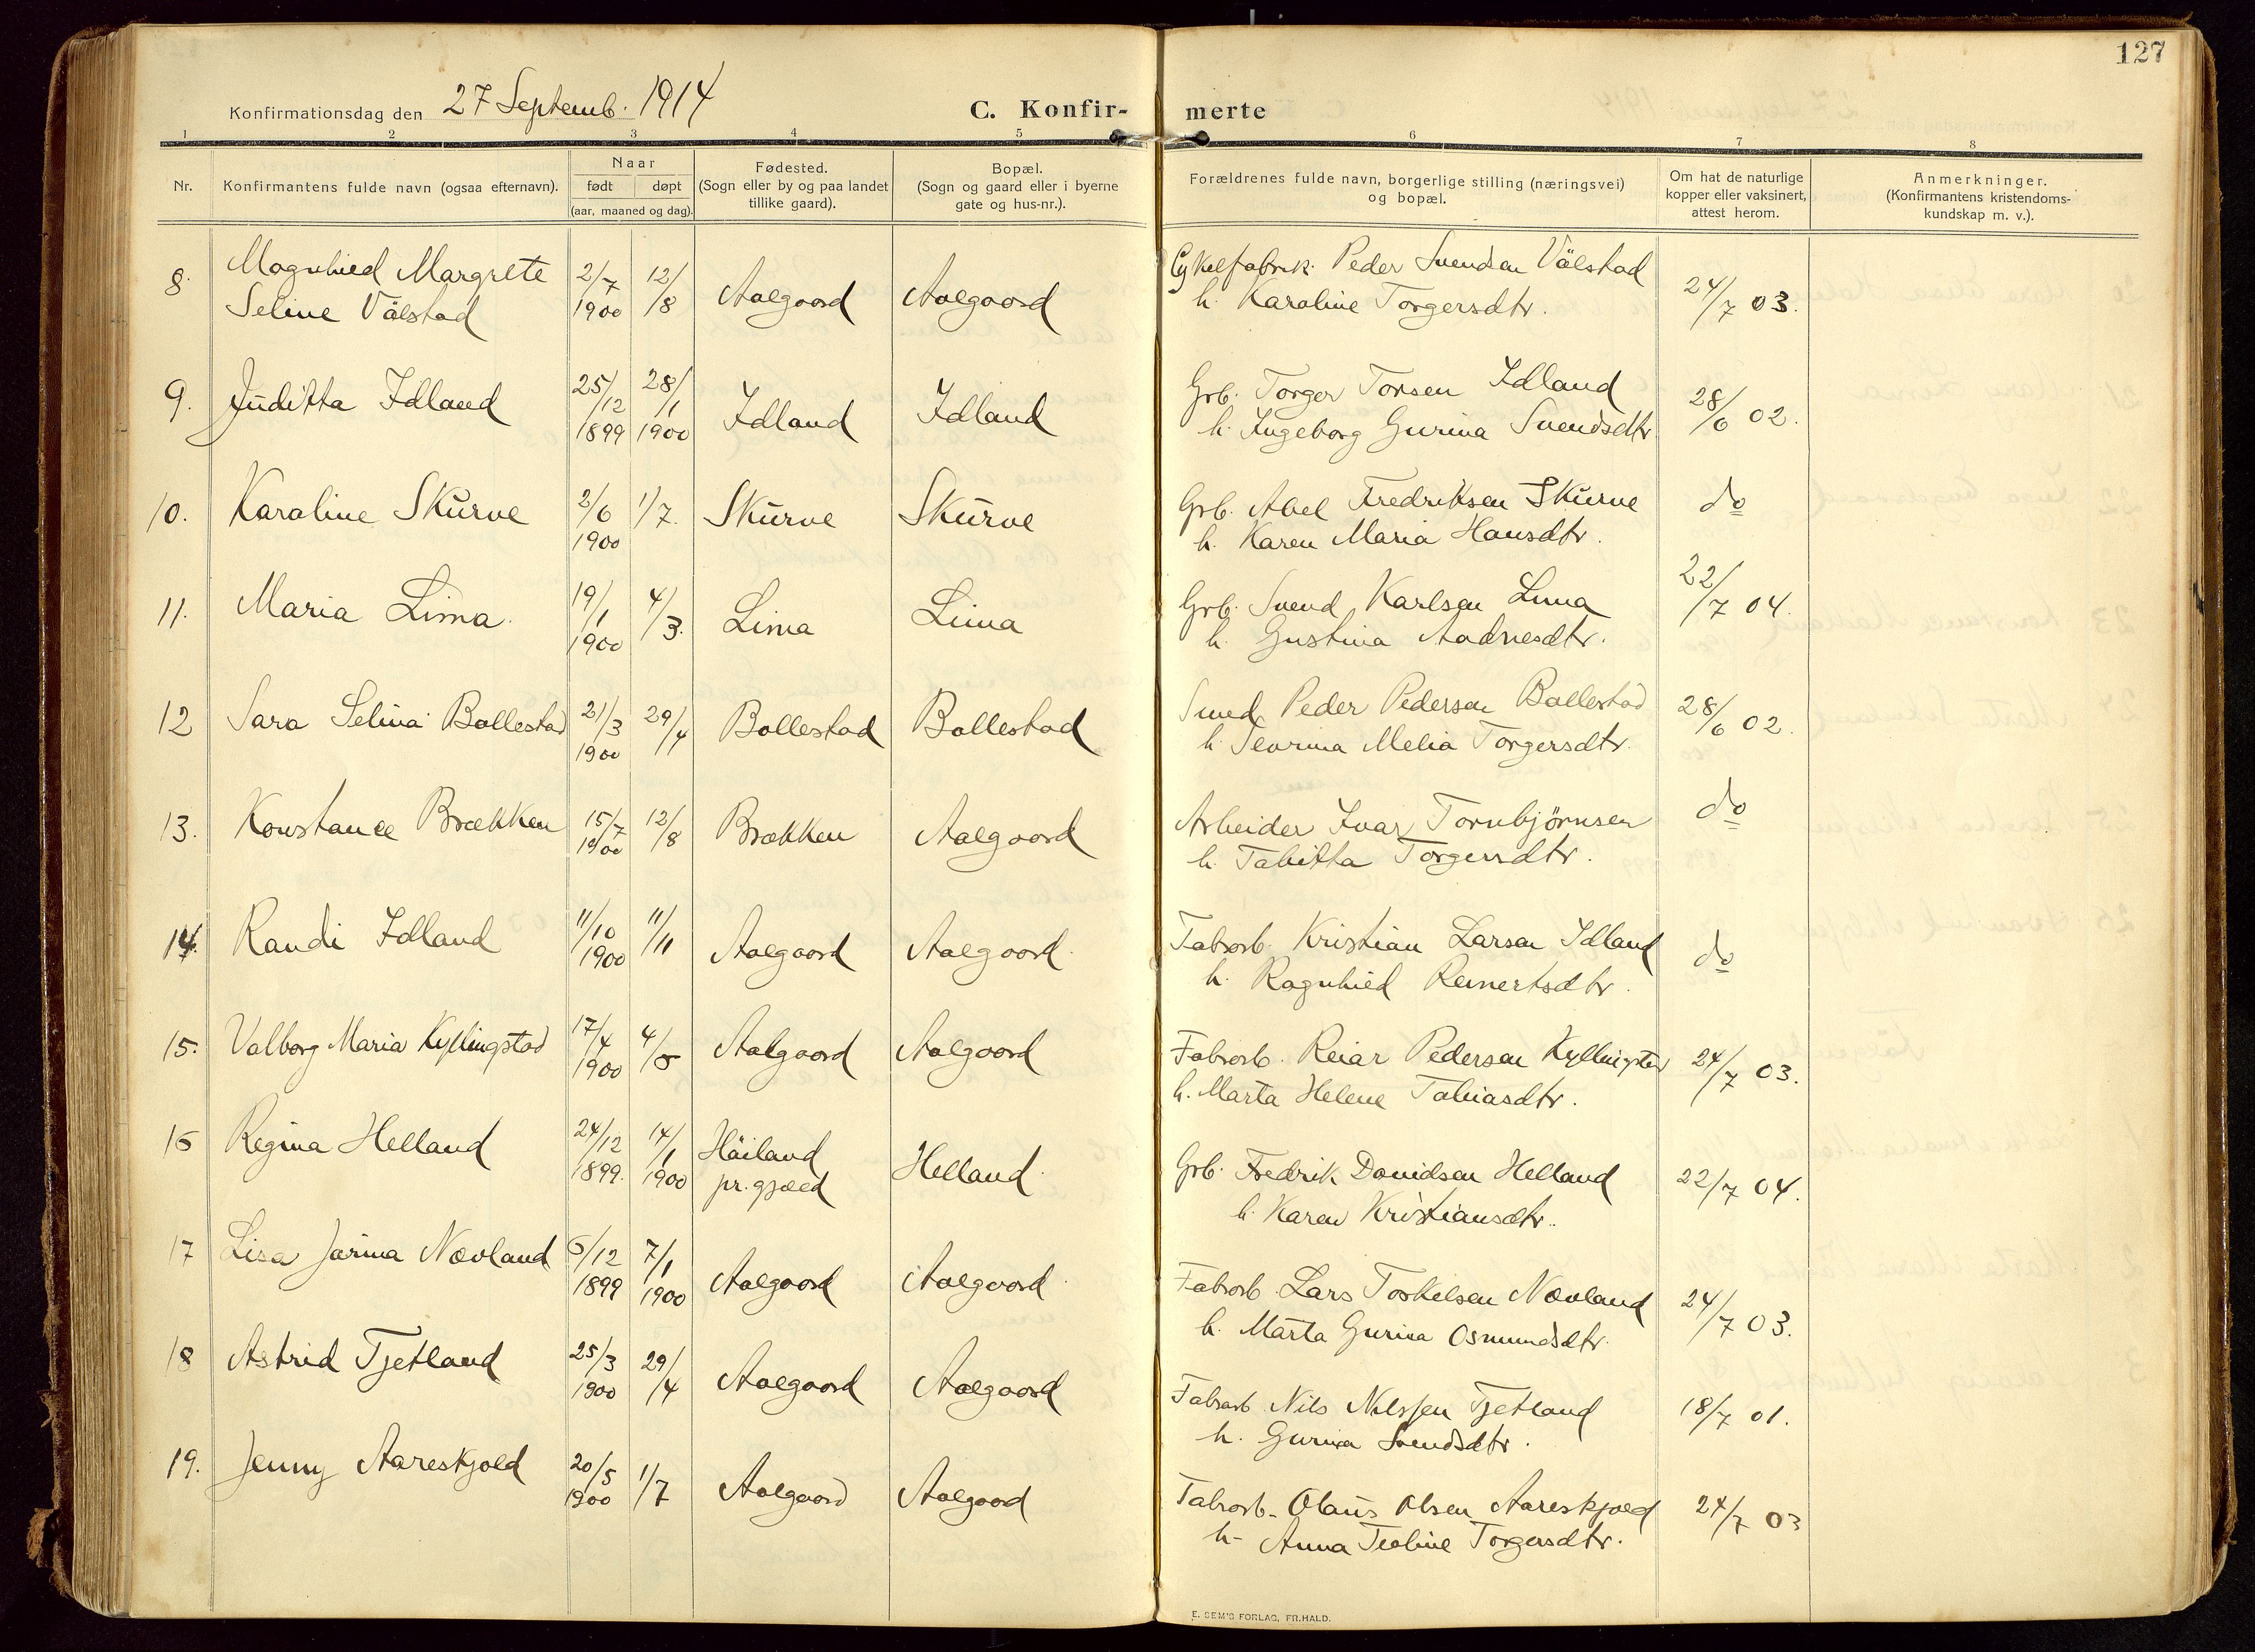 127
Konfirmationsdag den 27 Septemb. 1914
C. Konfir- merte
1 2 3 4 5 6 7 8
Nr.
Konfirmantens fulde navn (ogsaa efternavn).
Naar
født døpt
(aar, maaned og dag).
Fødested.
(Sogn eller by og paa landet
tillike gaard).
Bopæl.
(Sogn og gaard eller i byerne
gate og hus-nr.).
Forældrenes fulde navn, borgerlige stilling (næringsvei)
og bopæl.
Om hat de naturlige
kopper eller vaksinert,
attest herom.
Anmerkninger.
(Konfirmantens kristendoms-
kundskap m. v.).
8. Magnhied Margrete 2/7 12/8 Aalgaard Aalgaard Cykelfabrik. Peder Svendsen Välstad 24/7 03.
Seline Välstad 1900 h. Karaline Torgersdtr.
9. Juditta Idland 25/12 28/1 Idland Idland Grb. Torger Torsen Idland 28/6 02.
1899 1900 h. Ingeborg Gurina Svendsdtr.
10. Karaline Skurve 2/6 1/7. Skurve Skurve Grb. Abel Fredriksen Skurve do
1900 h. Karen Maria Hansdtr.
11. Maria Lima. 19/1 4/3. Lima Lima Grb. Svend Karlsen Lima 22/7 04.
1900 h. Gustina Aadnesdtr.
12 Sara Selina Ballestad 21/3 29/4 Ballestad Ballestad Smed Peder Pedersen Ballestad 28/6 02.
1900 h. Sevrina Melia Torgersdtr.
13. Konstanse Brækken 15/7 12/8 Brækken Aalgaard Arbeider Ivar Tornbjørnsen do
1900 h. Tabitta Torgersdtr.
14. Randi Idland 11/10 11/11 Aalgaard Aalgaard. Fabrarb. Kristian Larsen Idland do
1900 h. Ragnhied Reinertsdtr.
15. Valborg Maria Kyllingstad 17/4 4/5 Aalgaard Aalgaard Fabrarb. Reiar Pedersen Kyllingstad 24/7 03.
1900 h. Marta Helene Tobiasdtr.
16 Regina Helland 24/12 14/1 Häiland Helland. Grb. Fredrik Davidsen Helland 22/7 04.
1899. 1900 pr. gjæld h. Karen Kristiansdtr.
17 Lisa Jorina Nævland 6/12 7/1 Aalgaard Aalgaard. Fabrarb. Lars Torkelsen Nævland 24/7 03.
1899 1900 h. Marta Gurina Osmundsdtr.
18 Astrid Tjetland 25/3 29/4 Aalgaard Aalgaard Fabrarb. Nils Nilssen Tjetland 18/7 01.
1900 h. Gurina Svendsdtr.
19. Jenny Aareskjold 20/5 1/7 Aalgaard Aalgaard Fabrarb. Olaus Olsen Aareskjold 24/7 03
1900 h- Anna Teoline Torgersdtr.
E. SEM'S FORLAG, FR.HALD.